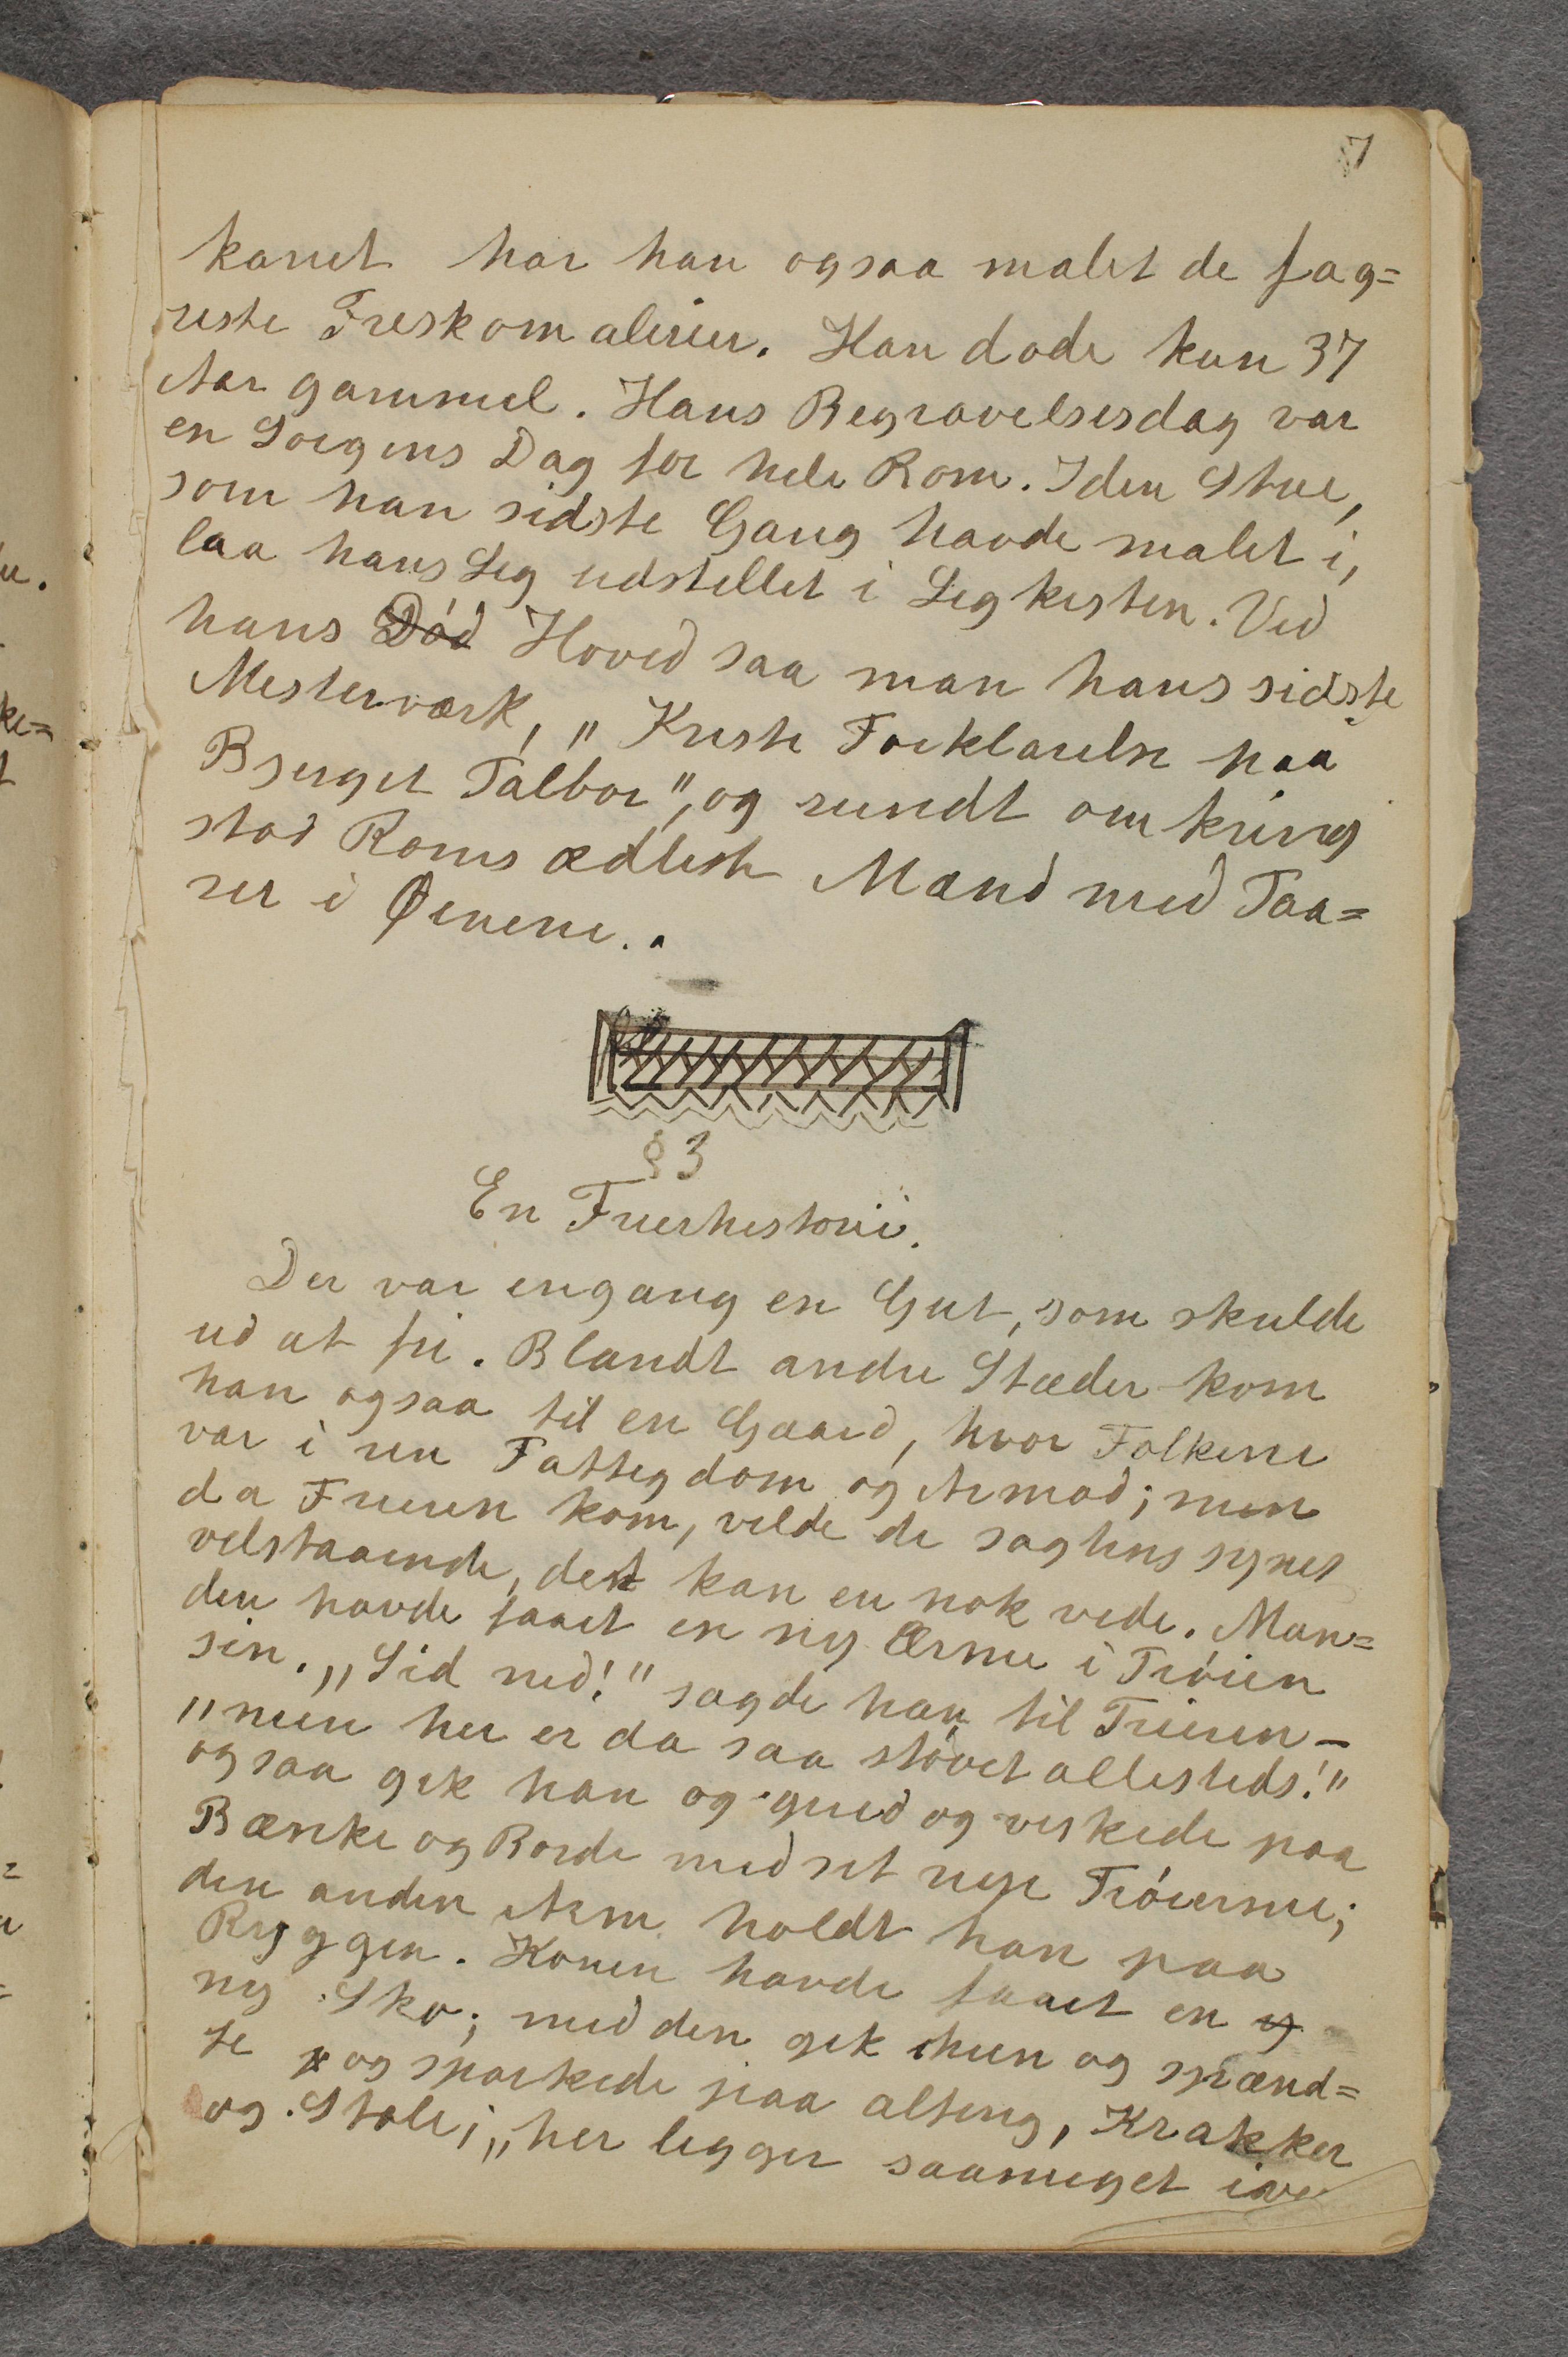 7
kanet har han ogsaa malet de fag=
reste Freskomalerier. Han døde kun 37
Aar gammel. Hans Begravelsesdag var
en Sorgens Dag for hele Rom. I den Stue,
som han sidste Gang havde malet i,
laa hans Lig udstillet i Ligkisten. Ved
hans Død Hoved saa man hans sidste
Mesterværk, „Kristi Forklarelse paa
Bjerget Talbor", og rundt omkring
stod Roms ædleste Mænd med Taa=
rer i Øinene.
§ 3
En Frierhistorie.
Der var engang en Gut, som skulde
ud at fri. Blandt andre Stæder kom
han ogsaa til en Gaard, hvor Folkene
var i ren Fattigdom og Armod; men
da Frieren kom, vilde de sagtens synes
velstaaende, det kan en nok vide. Man=
den havde faaet en ny Ærme i Trøien
sin. „Sid ned!" sagde han til Frieren –
„men her er da saa støvet allesteds!"
og saa gik han og gned og viskede paa
Bænke og Borde med sit nye Trøierme;
den anden Arm holdt han paa
Ryggen. Konen havde faaet en
ny Sko; med den gik hun og spænd=
te og sparkede paa alting, Krakker
og Stole; „her ligger saameget ive